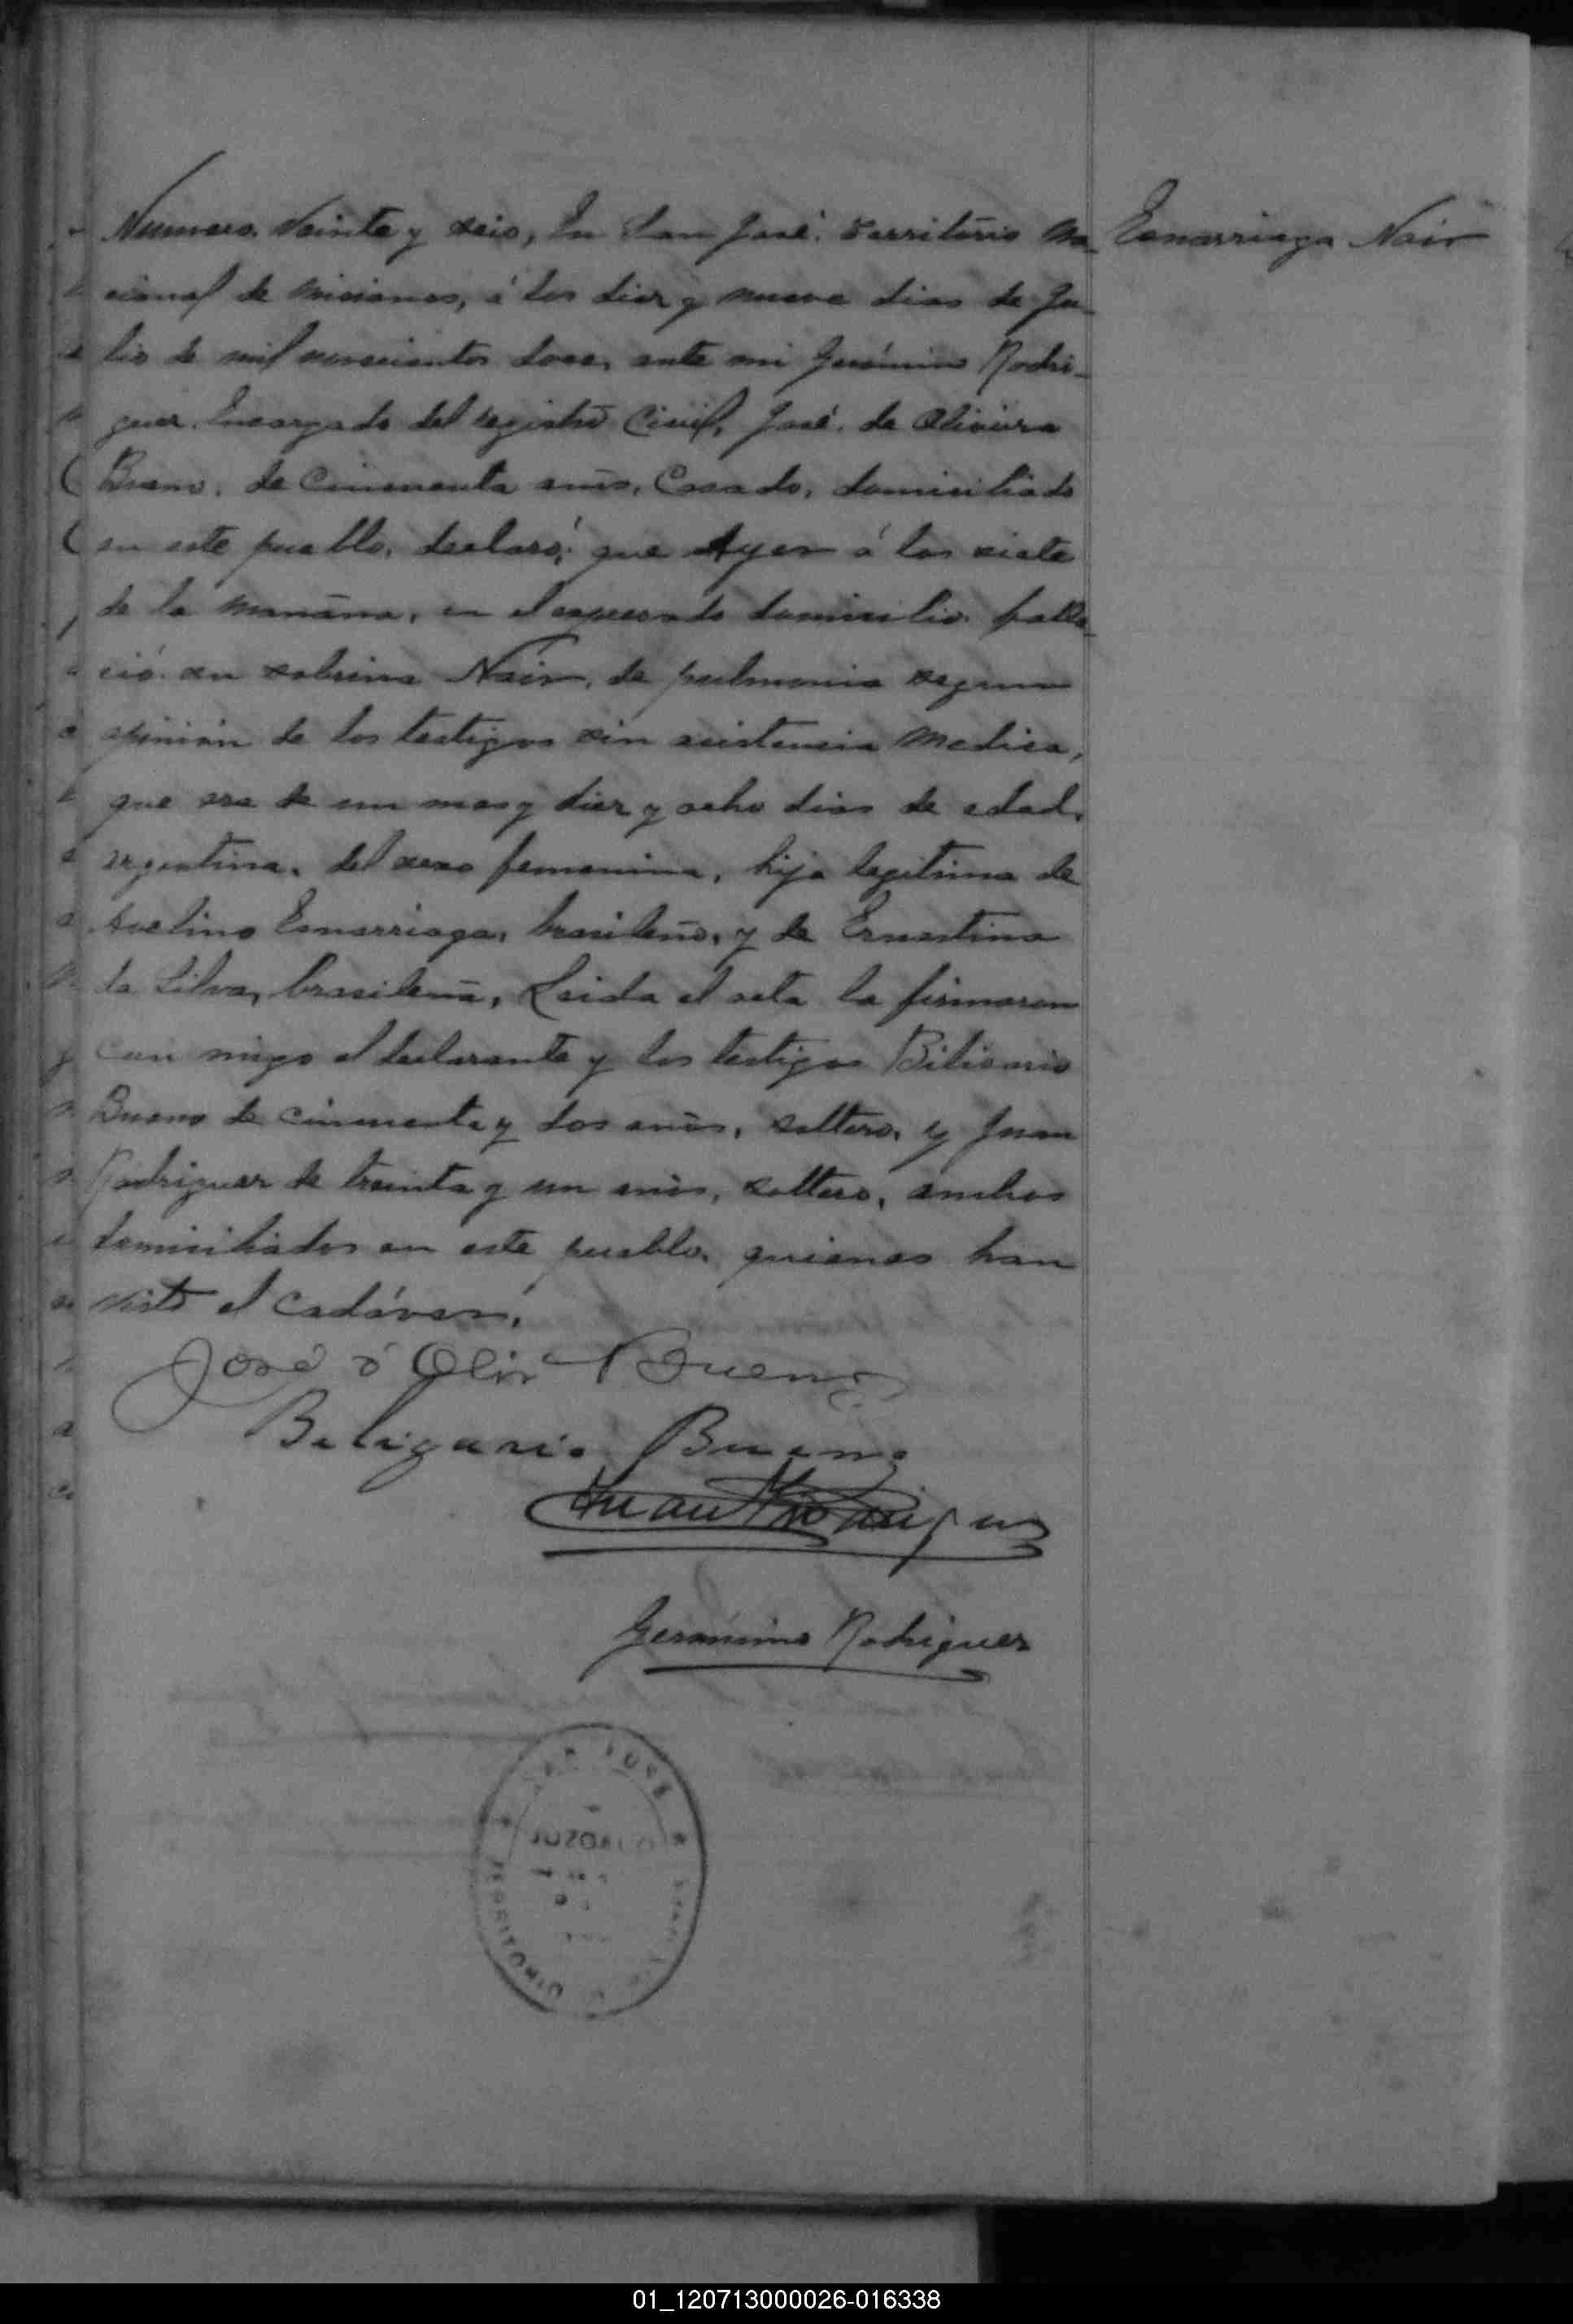 Numero Veinte y seis, En San José, Territorio Na-
Esmarriaga Nair
cional de Misiones, á los diez y nueve dias de Ju-
lio de mil novecientos doce, ante mi Gerónimo Rodri-
guez, Encargado del registro Civil, José de Oliveira
Bueno, de Cincuenta años, Casado, domiciliado
en este pueblo, declaró: que Ayer á las siete
de la mañana, en el expresado domicilio, falle-
ció su sobrina Nair, de pulmonia segun
opinión de los testigos sin asistencia Medica,
que era de un mes y diez y ocho dias de edad,
argentina, del sexo femenino, hija legitima de
Avelino Esmarriaga, brasileño, y de Ernestina
da Silva, brasileña, Leida el acta la firmaron
con migo el declarante y los testigos Bilisario
Bueno de cincuenta y dos años, soltero, y Juan
Rodriguez de treinta y un años, soltero, ambos
domiciliados en este pueblo, quienes han
visto el Cadáver.
José Bueno
Beligario Bueno
Juan Rodriguez
Gerónimo Rodriguez
SAN JOSÉ
JUZGADO
TERRITORIO
01_120713000026-016338